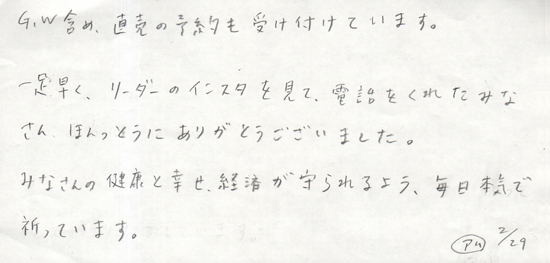 G,W含め、直売の予約も受け付けています。
一足早く、リーダーのインスタを見て、電話をくれたみな
さん、ほんっとうにありがとうございました。
みなさんの健康と幸せ、経済が守られるよう、毎日本気で
祈っています。
2/29